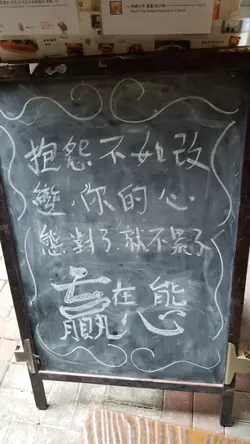 抱怨不如改
變,你的心
態,對了,就不累了
贏在態